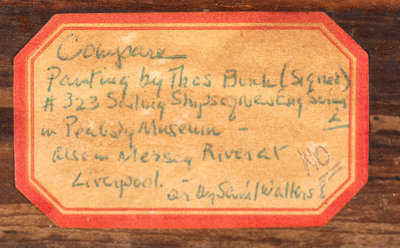 Compare
Painting by Thos Buik (Signed)
# 323 Sailing Ships of New Eng Series
in Peabody Museum –
also in Mersey River at
Liverpool. – or by Sam'l Walters
NO